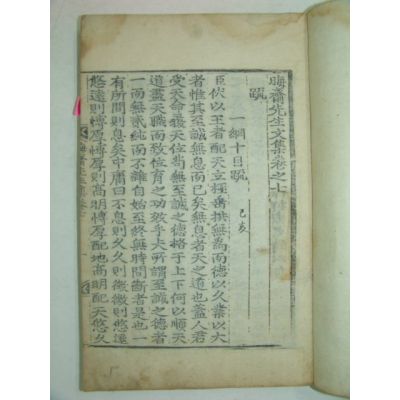 晦齋先生文集卷之七
疏
一綱十目疏 己亥
臣伏以王者配天立極垂拱無爲而德以久業以大
者惟其至誠無息而已矣無息者天之道也蓋人君
受天命履天位苟無至誠之德格于上下何以順天
道盡天職而致位育之功效乎夫所謂至誠之德者
一而無貳純而不雜自始至終無時間斷者是也一
有所間則息矣中庸曰不息則久久則徵徵則悠遠
悠遠則博厚博厚則高明博厚配地高明配天悠久